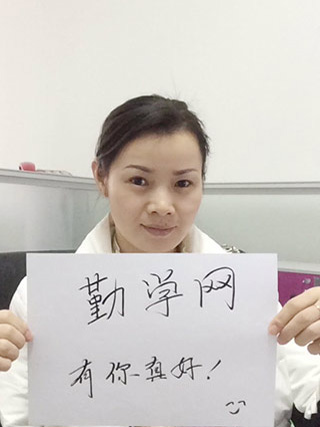 勤学网
有你真好!